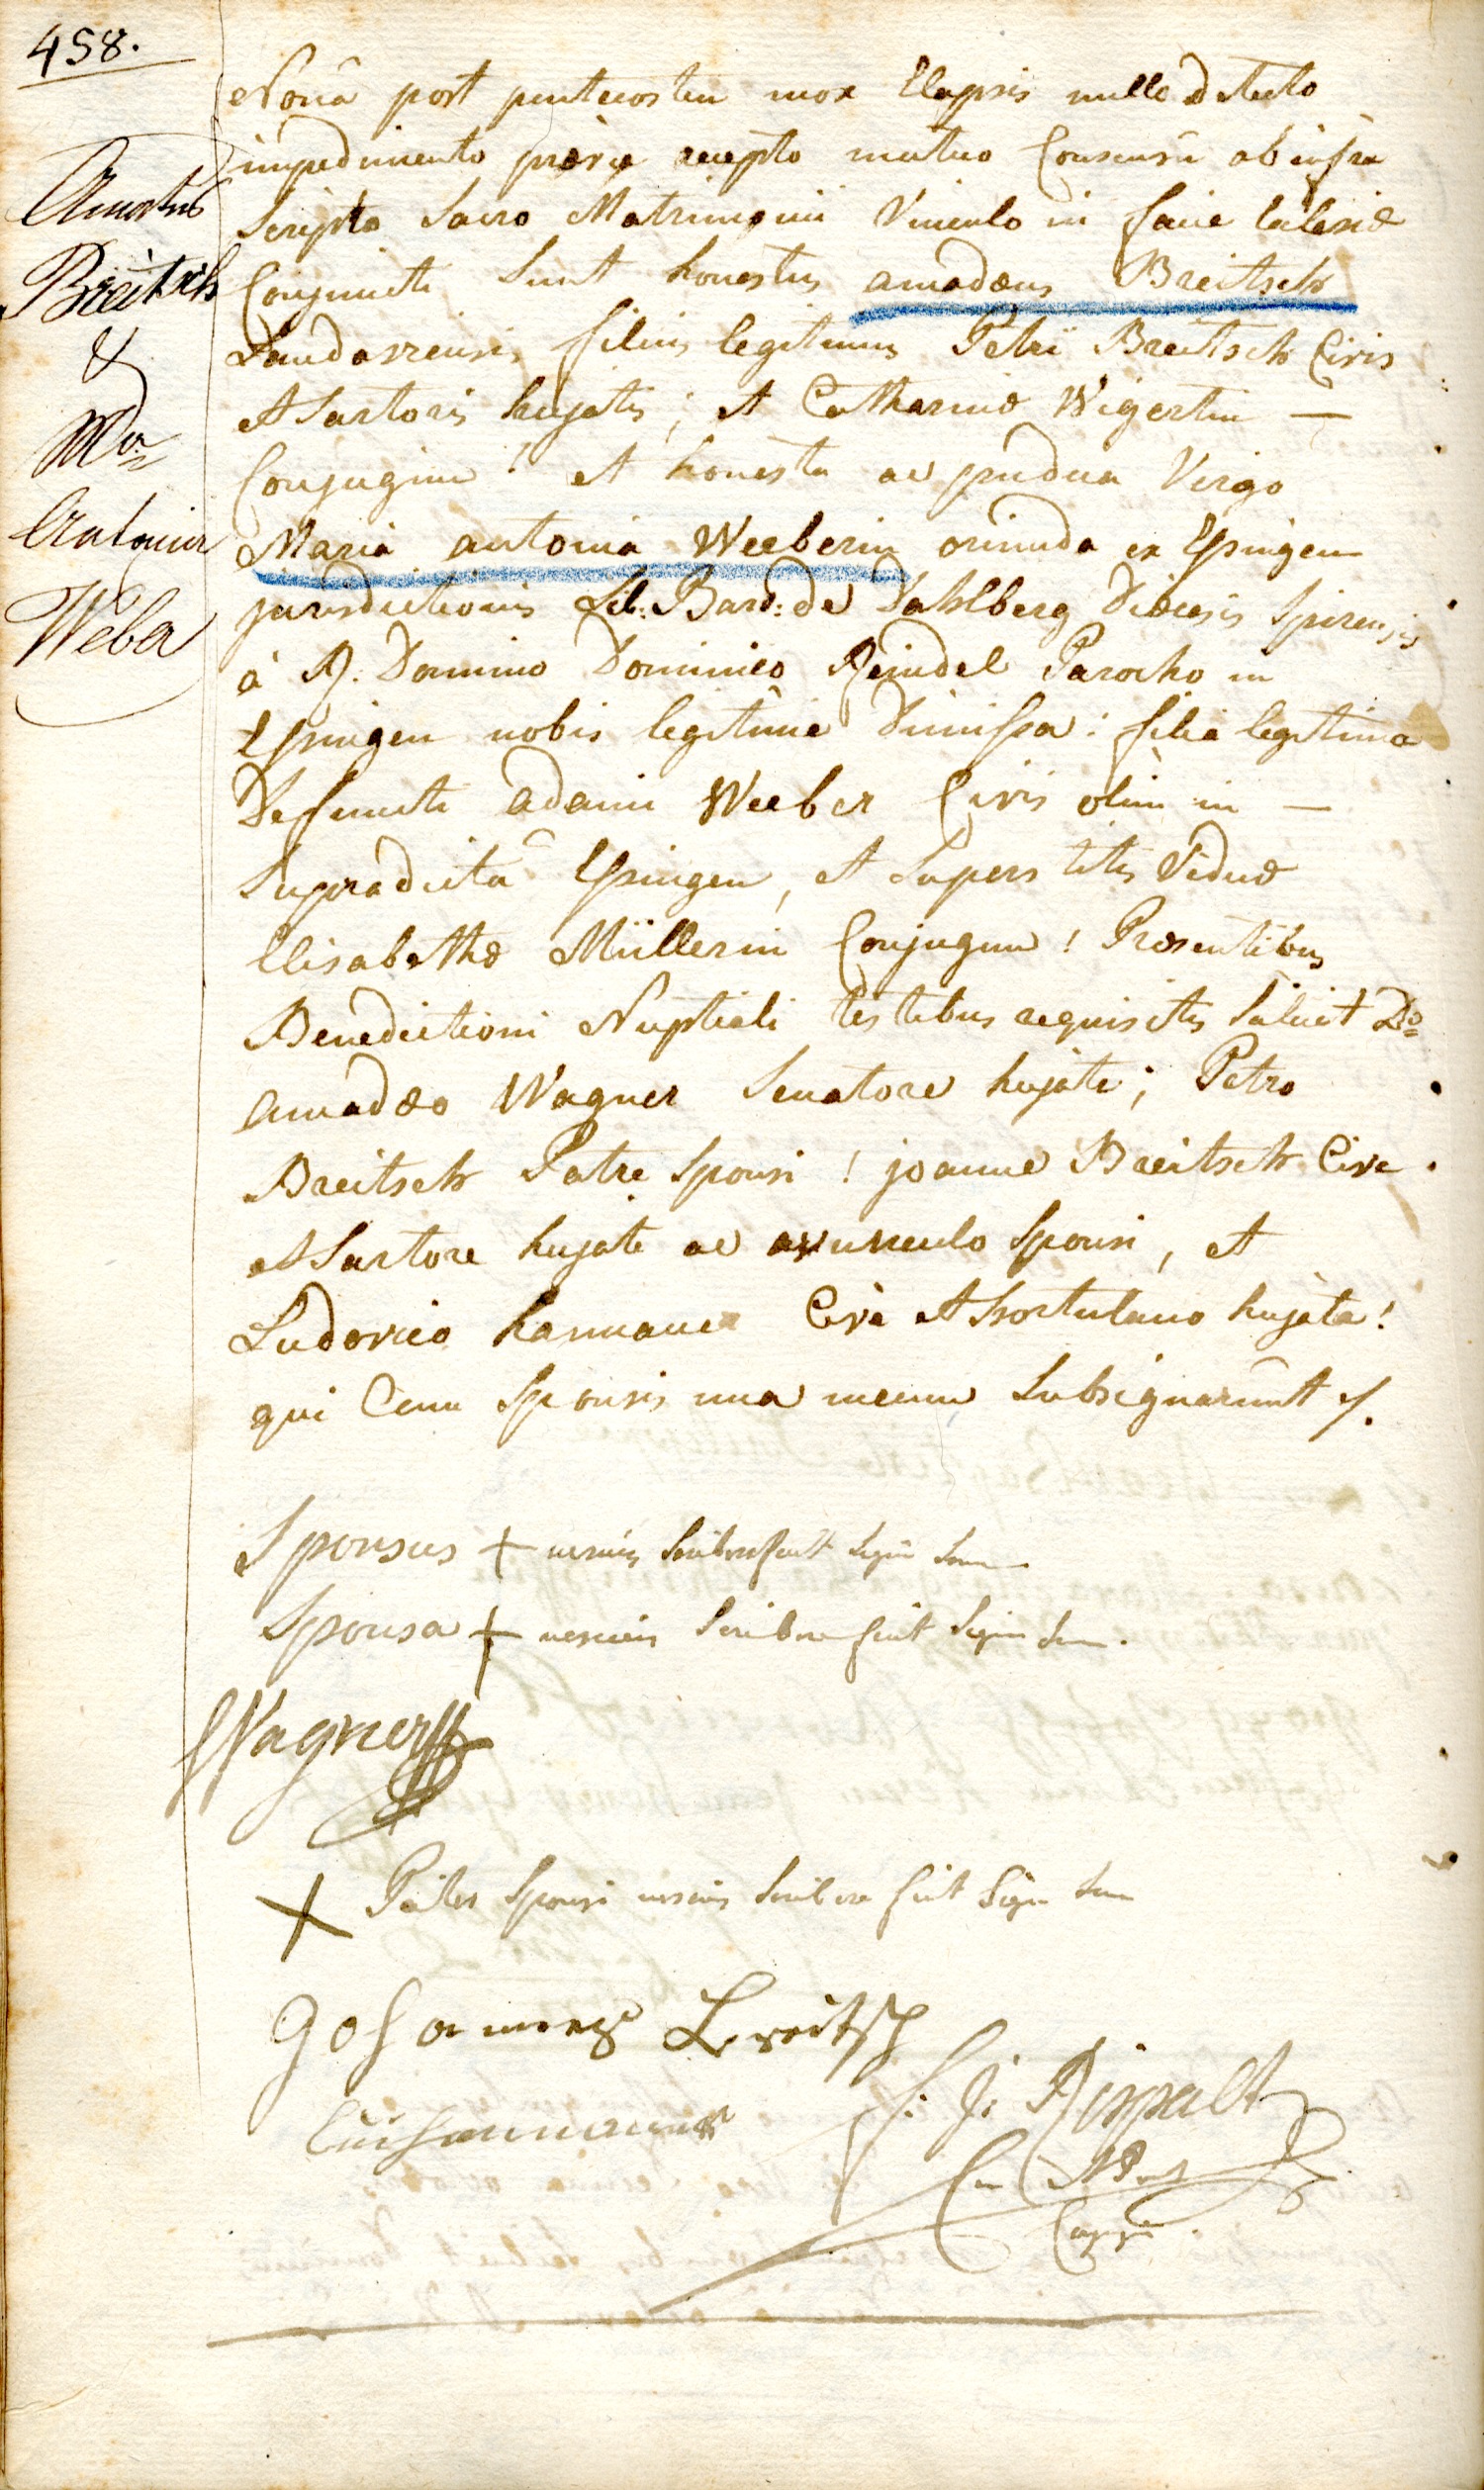 458.
Amadeus
Breitsch
&
Ma:
Antonia
Weber
Nonâ post pentecosten mox Elapsis nullo detecto
impedimento prævie recepto mutuo Consensu ab infra
Scripto Sacro Matrimonii Vinculo in facie Ecclesiæ
Conjuncti Sunt honestus amadæus Breitsch
Landaviensis filius legitimus Petri Breitsch Civis
et Sartoris hujatis; et Catharinæ Wigertin —
Conjugum! et honesta ac pudica Virgo
Maria antonia Weeberin oriunda ex Esingen
jurisdictionis Lib: Baro: de Dahlberg Diæcesis Spirensis
à R: Domino Dominico Reindel Parocho in
Esingen nobis legitime Dimissa: filia legitima
Defuncti adami Weeber Civis olim in —
Supradicta Esingen, et Superstitis Viduæ
Elisabethæ Müllerin Conjugum! Præsentibus
Benedictioni Nuptiali testibus requisitis Salicet Do
amadæo Wagner Senatore hujate; Petro
Breitsch Patre Sponsi! joanne Breitsch Cive
et Sartore hujate ac avunculo Sponsi, et
Ludovico hanmauer Cive et hortulano hujate!
qui Cum Sponsis una mecum Subsignarunt /.
Sponsus + nescius Scribere fecit Signu Suu
Sponsa + nesciens Scribere fecit Signu Suu.
Wagner
+ Pater Sponsi nescius Scribere fecit Signu Suu
Johannes Breitsch
F: J: Rippalt